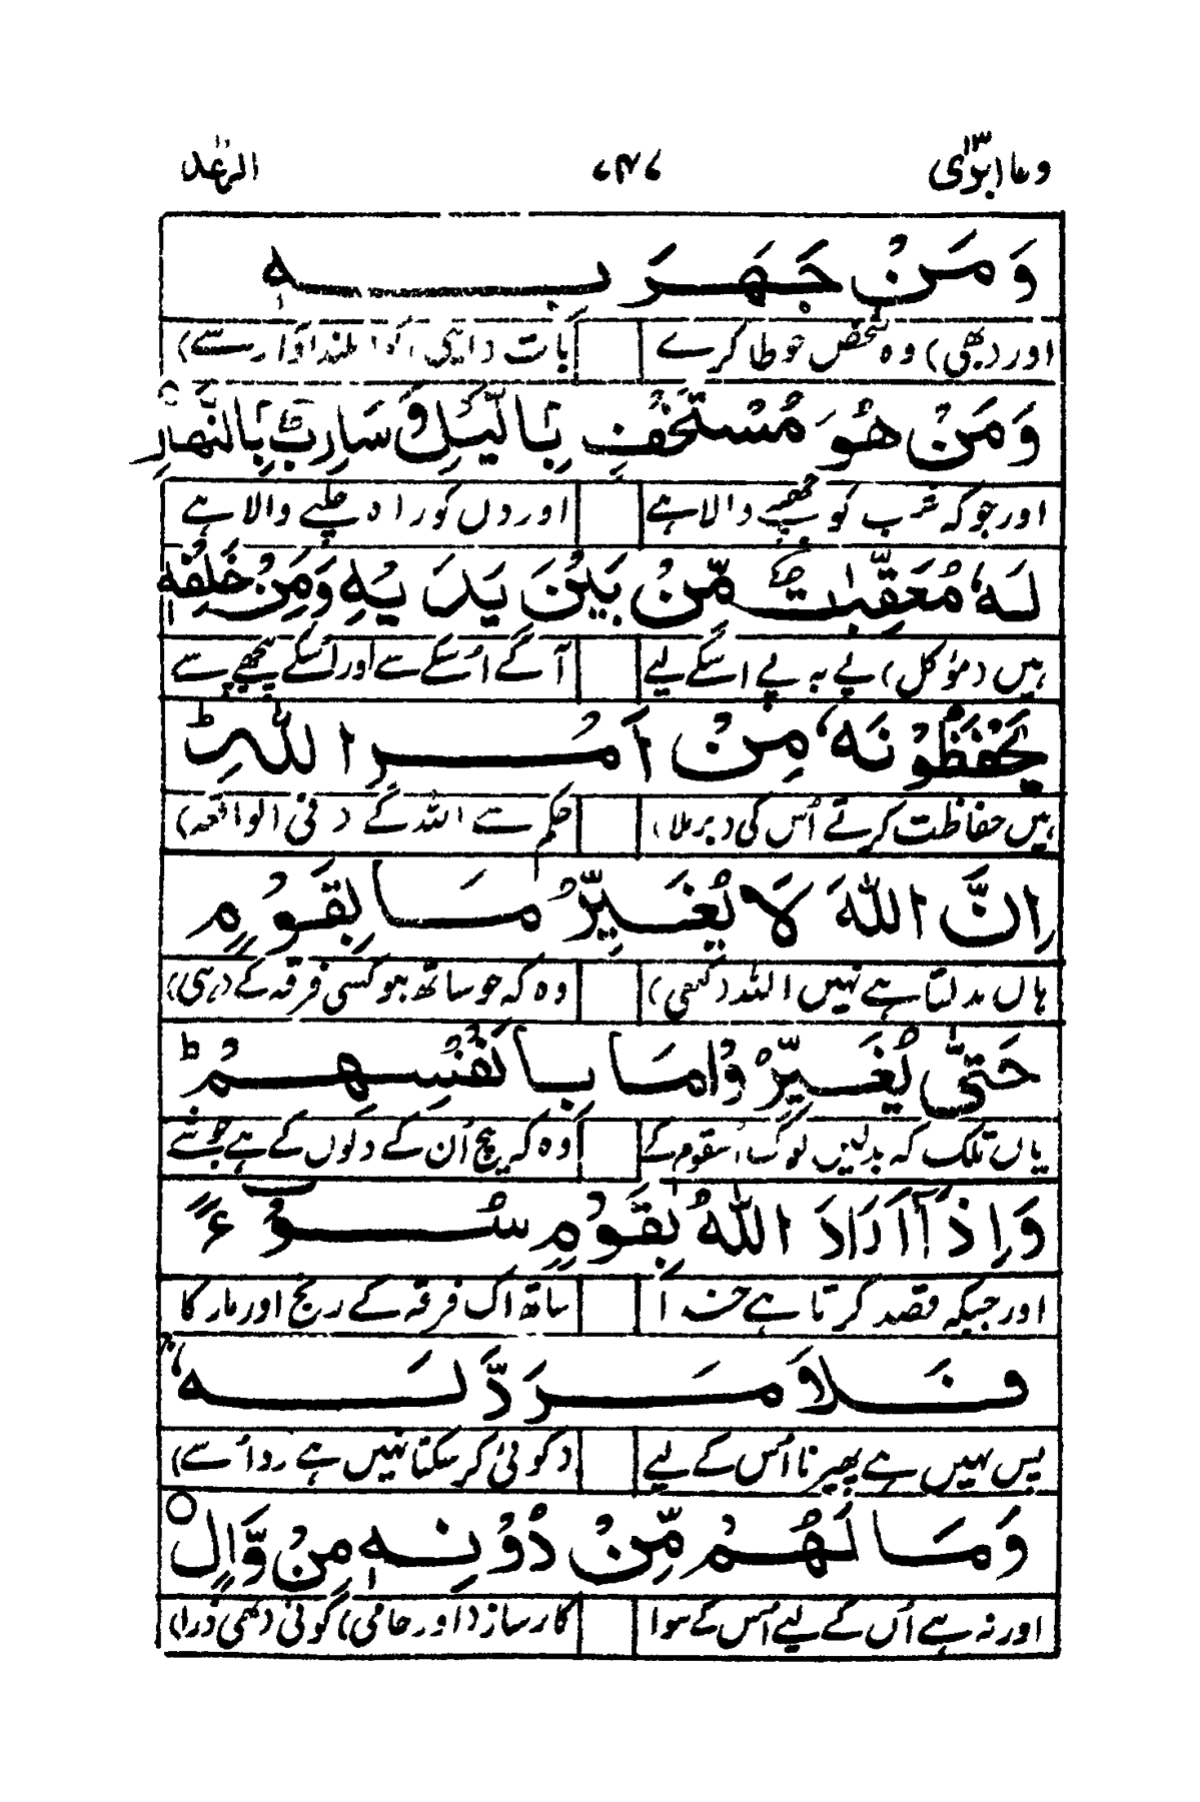 وما ابرّئ ١٣ ٧٤٧ الرعد
وَمَنْ جَهَرَ بِهٖ
اور (بھی) وہ شخص جو عطا کرے بات
وَمَنْ هُوَ مُسْتَخْفٍۭ بِالَّيْلِ وَسَارِبٌۢ بِالنَّهَارِ
اور جو کہ شب کو چھپنے والا ہے اور دن کو راہ چلنے والا ہے
لَهٗ مُعَقِّبٰتٌ مِّنْۢ بَيْنِ يَدَيْهِ وَمِنْ خَلْفِهٖ
ہیں (مؤکل) پے بہ پے اسکے لیے آگے اُسکے سے اور اُسکے پیچھے سے
يَحْفَظُوْنَهٗ مِنْ اَمْرِ اللّٰهِ ؕ
ہیں حفاظت کرتے اُس کی (برملا) حکم سے اللہ کے (فی الواقعہ)
اِنَّ اللّٰهَ لَا يُغَيِّرُ مَا بِقَوْمٍ
ہاں بدلتا ہے نہیں اللہ (کبھی) وہ کہ جو ساتھ ہو کسی فرقہ کے (ہی)
حَتّٰى يُغَيِّرُوْا مَا بِاَنْفُسِهِمْ ؕ
یاں تلک کہ بدلیں لوگ اُس قوم کے وہ کہ بیچ اُن کے دلوں کے ہے
وَاِذَاۤ اَرَادَ اللّٰهُ بِقَوْمٍ سُوْٓءًا
اور جبکہ قصد کرتا ہے خدا ساتھ اک فرقہ کے رنج اور مار کا
فَلَا مَرَدَّ لَهٗ ۚ
پس نہیں ہے پھیرنا اُس کے لیے (کوئی کر سکتا نہیں ہے رد اُسے)
وَمَا لَهُمْ مِّنْ دُوْنِهٖ مِنْ وَّالٍ ○
اور نہ ہے اُن کے لیے اُس کے سوا کارساز (اور حامی) کوئی (بھی ذرا)